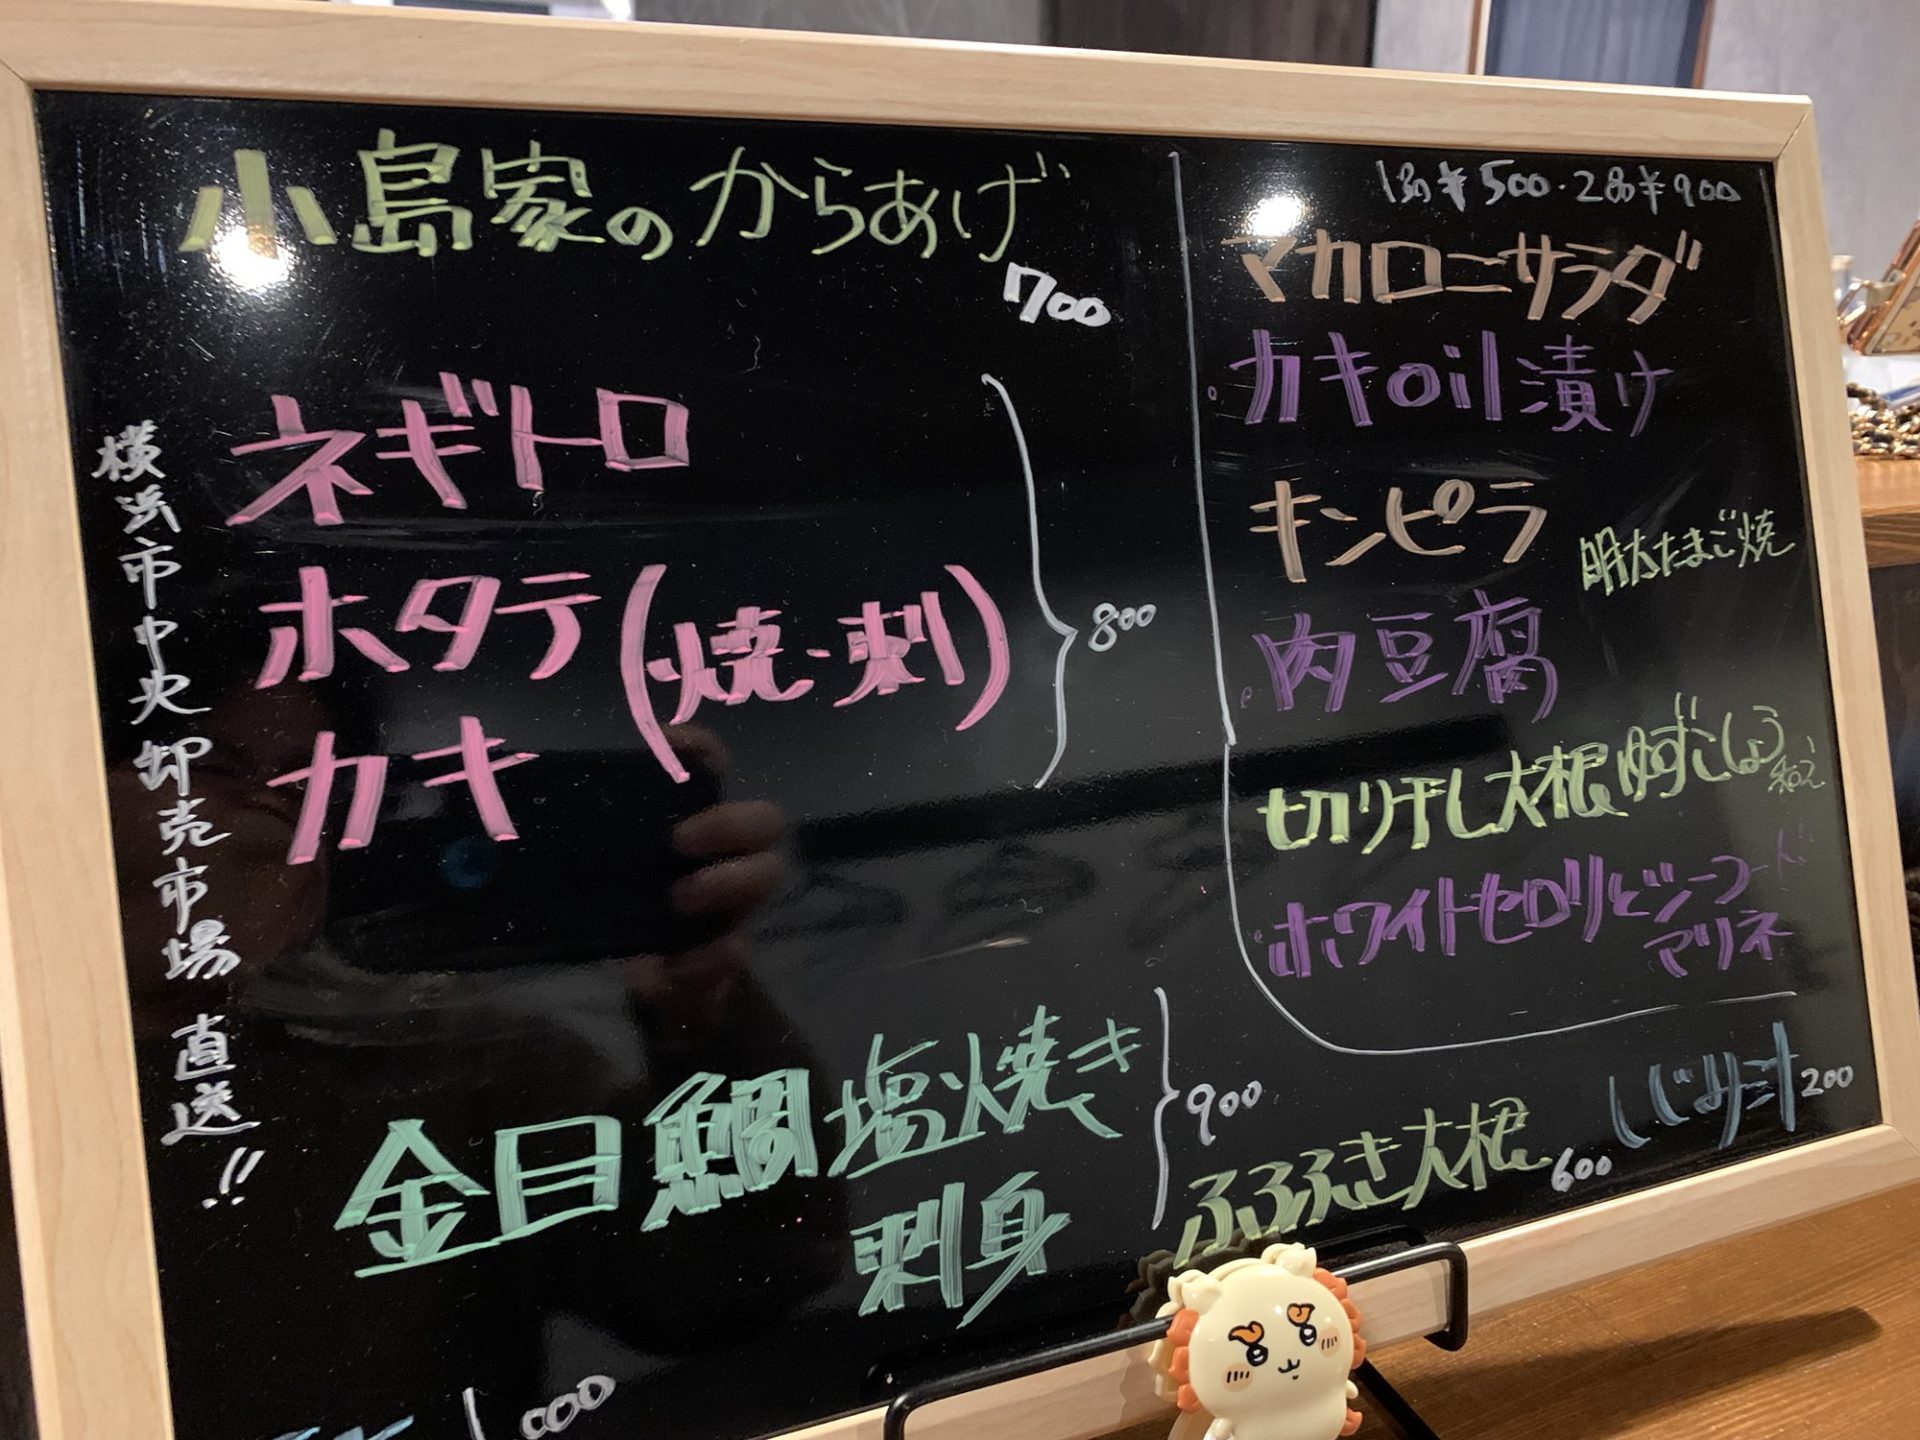 小島家のからあげ
700
横浜市中央卸売市場直送!!
ネギトロ
ホタテ(焼・刺)
カキ
800
金目鯛塩焼き
刺身
900
1000
1品¥500・2品¥900
マカロニサラダ
カキoil漬け
キンピラ
明太たまご焼
肉豆腐
切り干し大根ゆずこしょう和え
ホワイトセロリとシーフード
マリネ
ふろふき大根
600
しじみ汁200